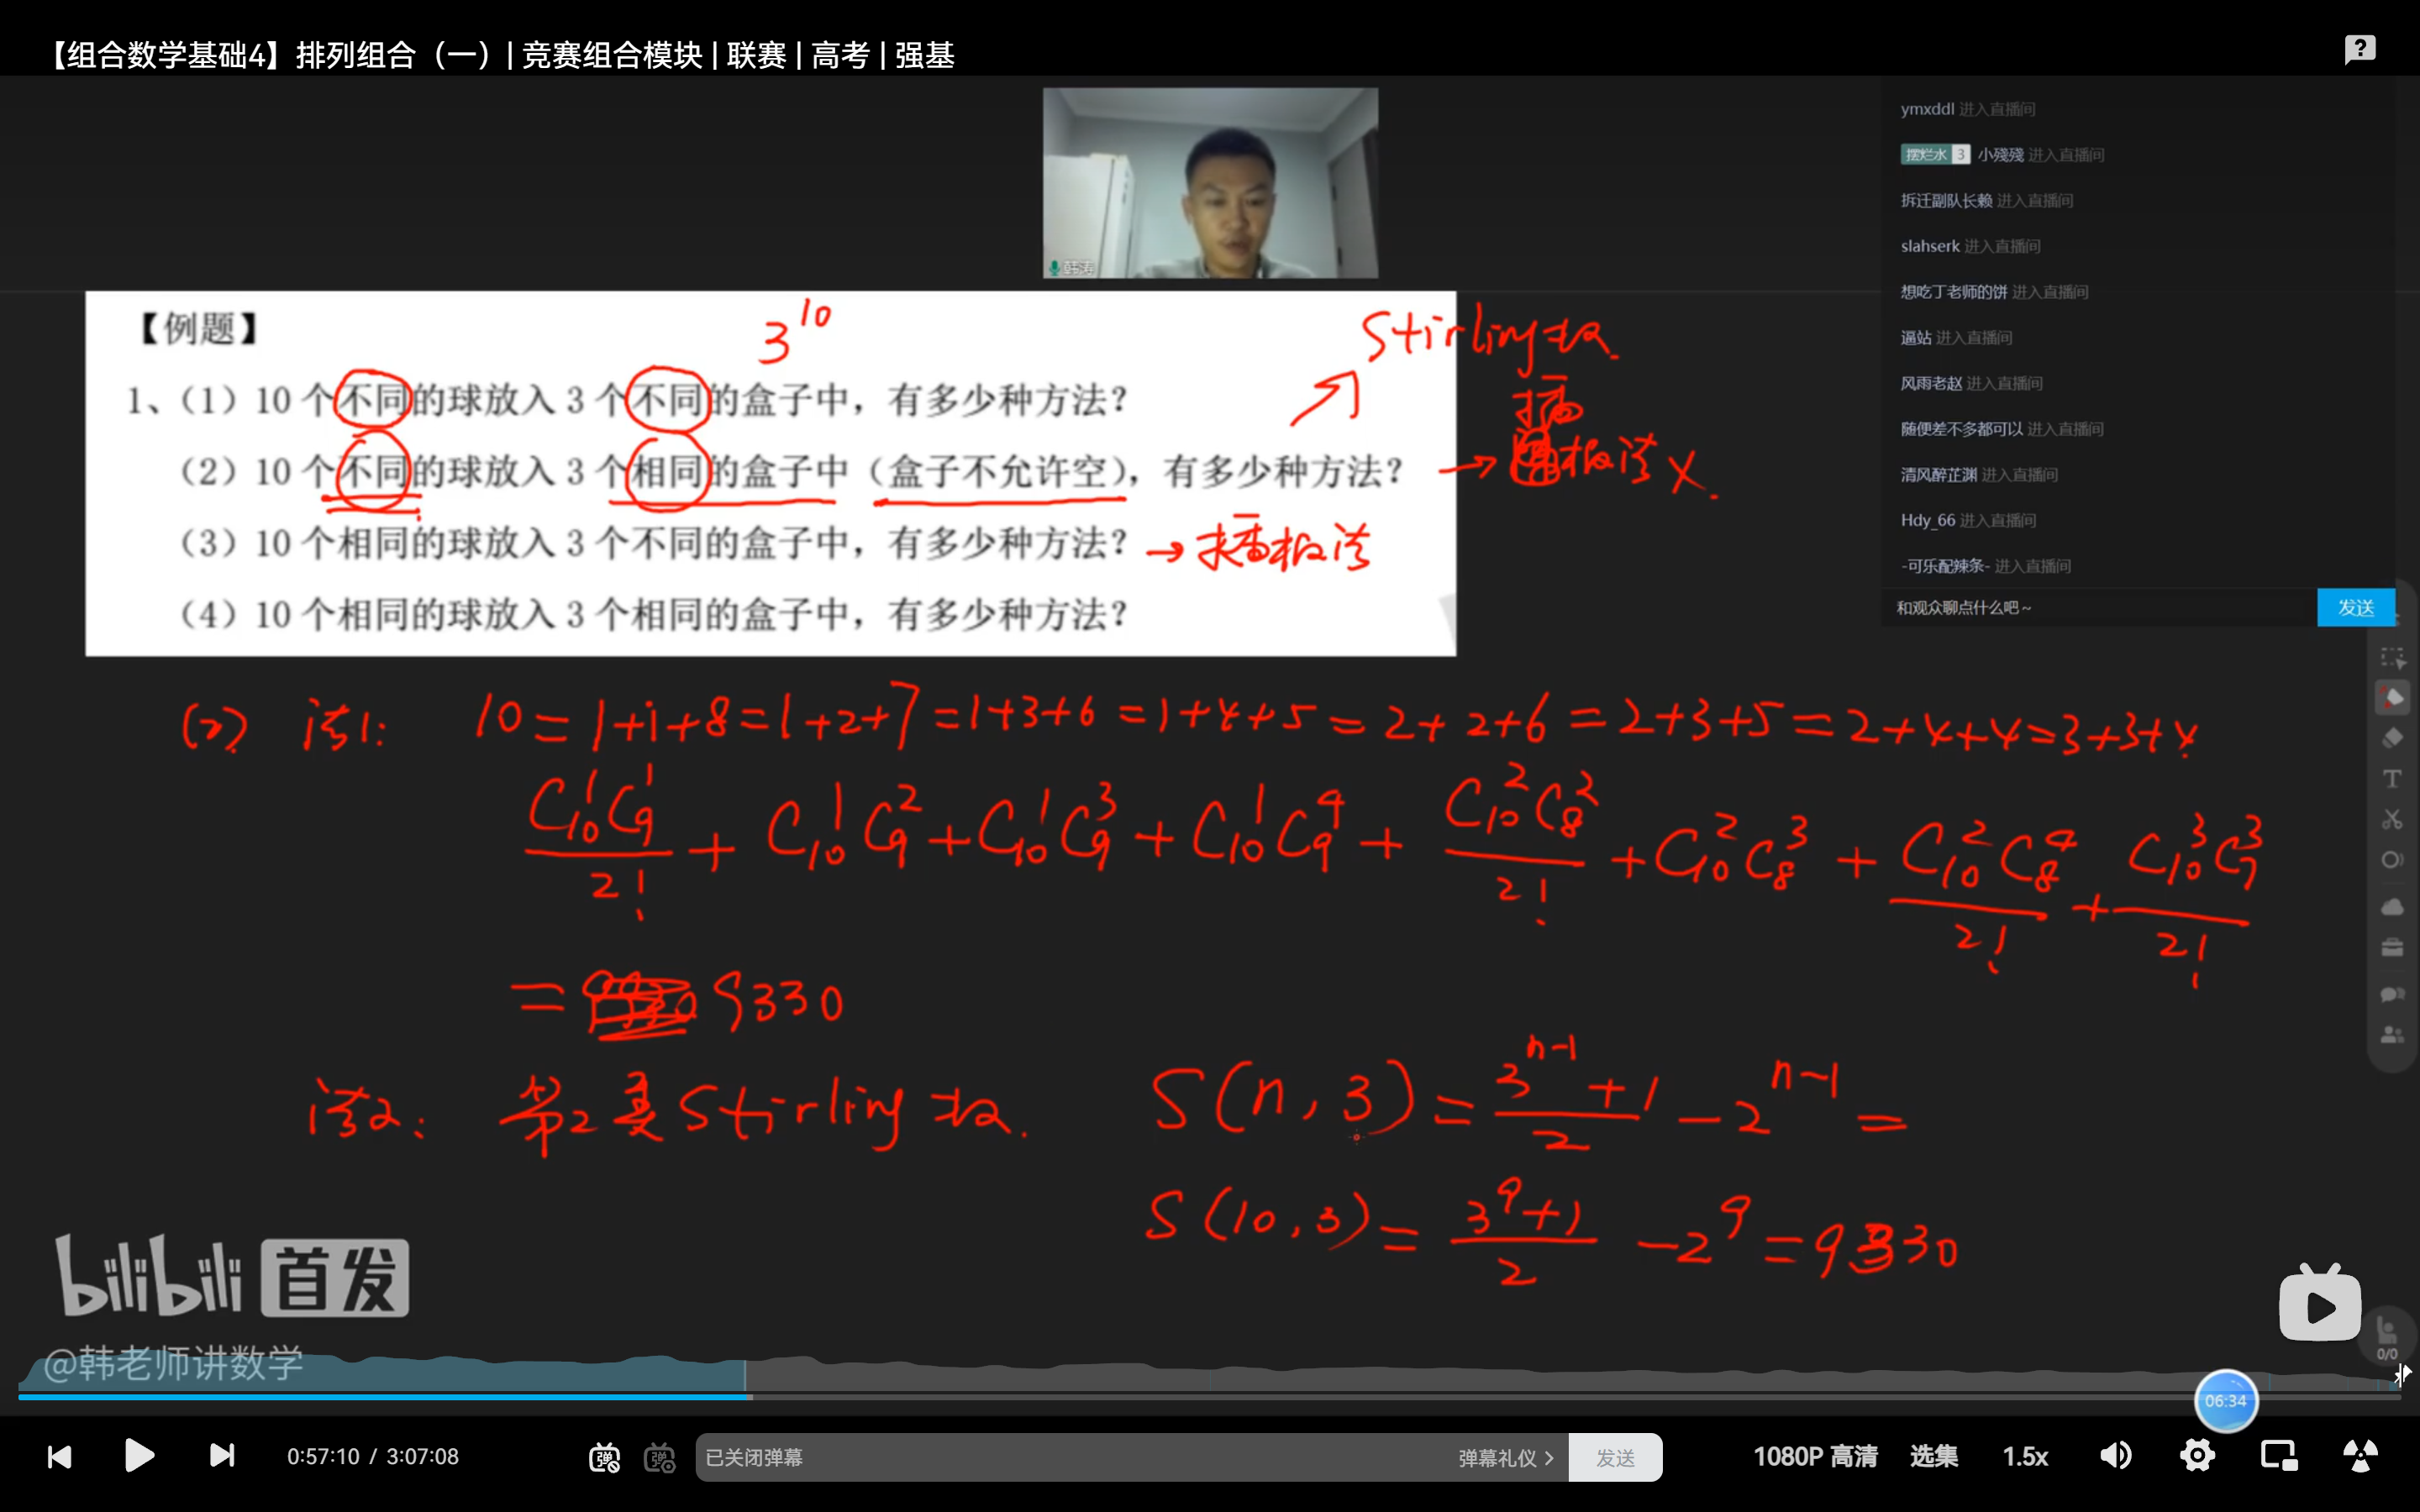 【组合数学基础4】排列组合（一）| 竞赛组合模块 | 联赛 | 高考 | 强基
韩涛
ymxddl 进入直播间
摆烂水 3 小殘殘 进入直播间
拆迁副队长赖 进入直播间
slahserk 进入直播间
想吃丁老师的饼 进入直播间
逼站 进入直播间
风雨老赵 进入直播间
随便差不多都可以 进入直播间
清风醉芷渊 进入直播间
Hdy_66 进入直播间
-可乐配辣条- 进入直播间
和观众聊点什么吧~ 发送
【例题】
3^10
Stirling数.
1、（1）10 个不同的球放入 3 个不同的盒子中，有多少种方法？
（2）10 个不同的球放入 3 个相同的盒子中（盒子不允许空），有多少种方法？ → 插板法 X.
（3）10 个相同的球放入 3 个不同的盒子中，有多少种方法？ → 插板法
（4）10 个相同的球放入 3 个相同的盒子中，有多少种方法？
(2) 法1: 10=1+1+8=1+2+7=1+3+6=1+4+5=2+2+6=2+3+5=2+4+4=3+3+4
C_10^1 C_9^1 / 2! + C_10^1 C_9^2 + C_10^1 C_9^3 + C_10^1 C_9^4 + C_10^2 C_8^2 / 2! + C_10^2 C_8^3 + C_10^2 C_8^4 / 2! + C_10^3 C_7^3 / 2!
= 9330
法2: 第2类Stirling数. S(n,3) = (3^(n-1)+1)/2 - 2^(n-1) =
S(10,3) = (3^9+1)/2 - 2^9 = 9330
bilibili 首发
@韩老师讲数学
0/0
06:34
0:57:10 / 3:07:08 弹 弹 已关闭弹幕 弹幕礼仪 > 发送 1080P 高清 选集 1.5x